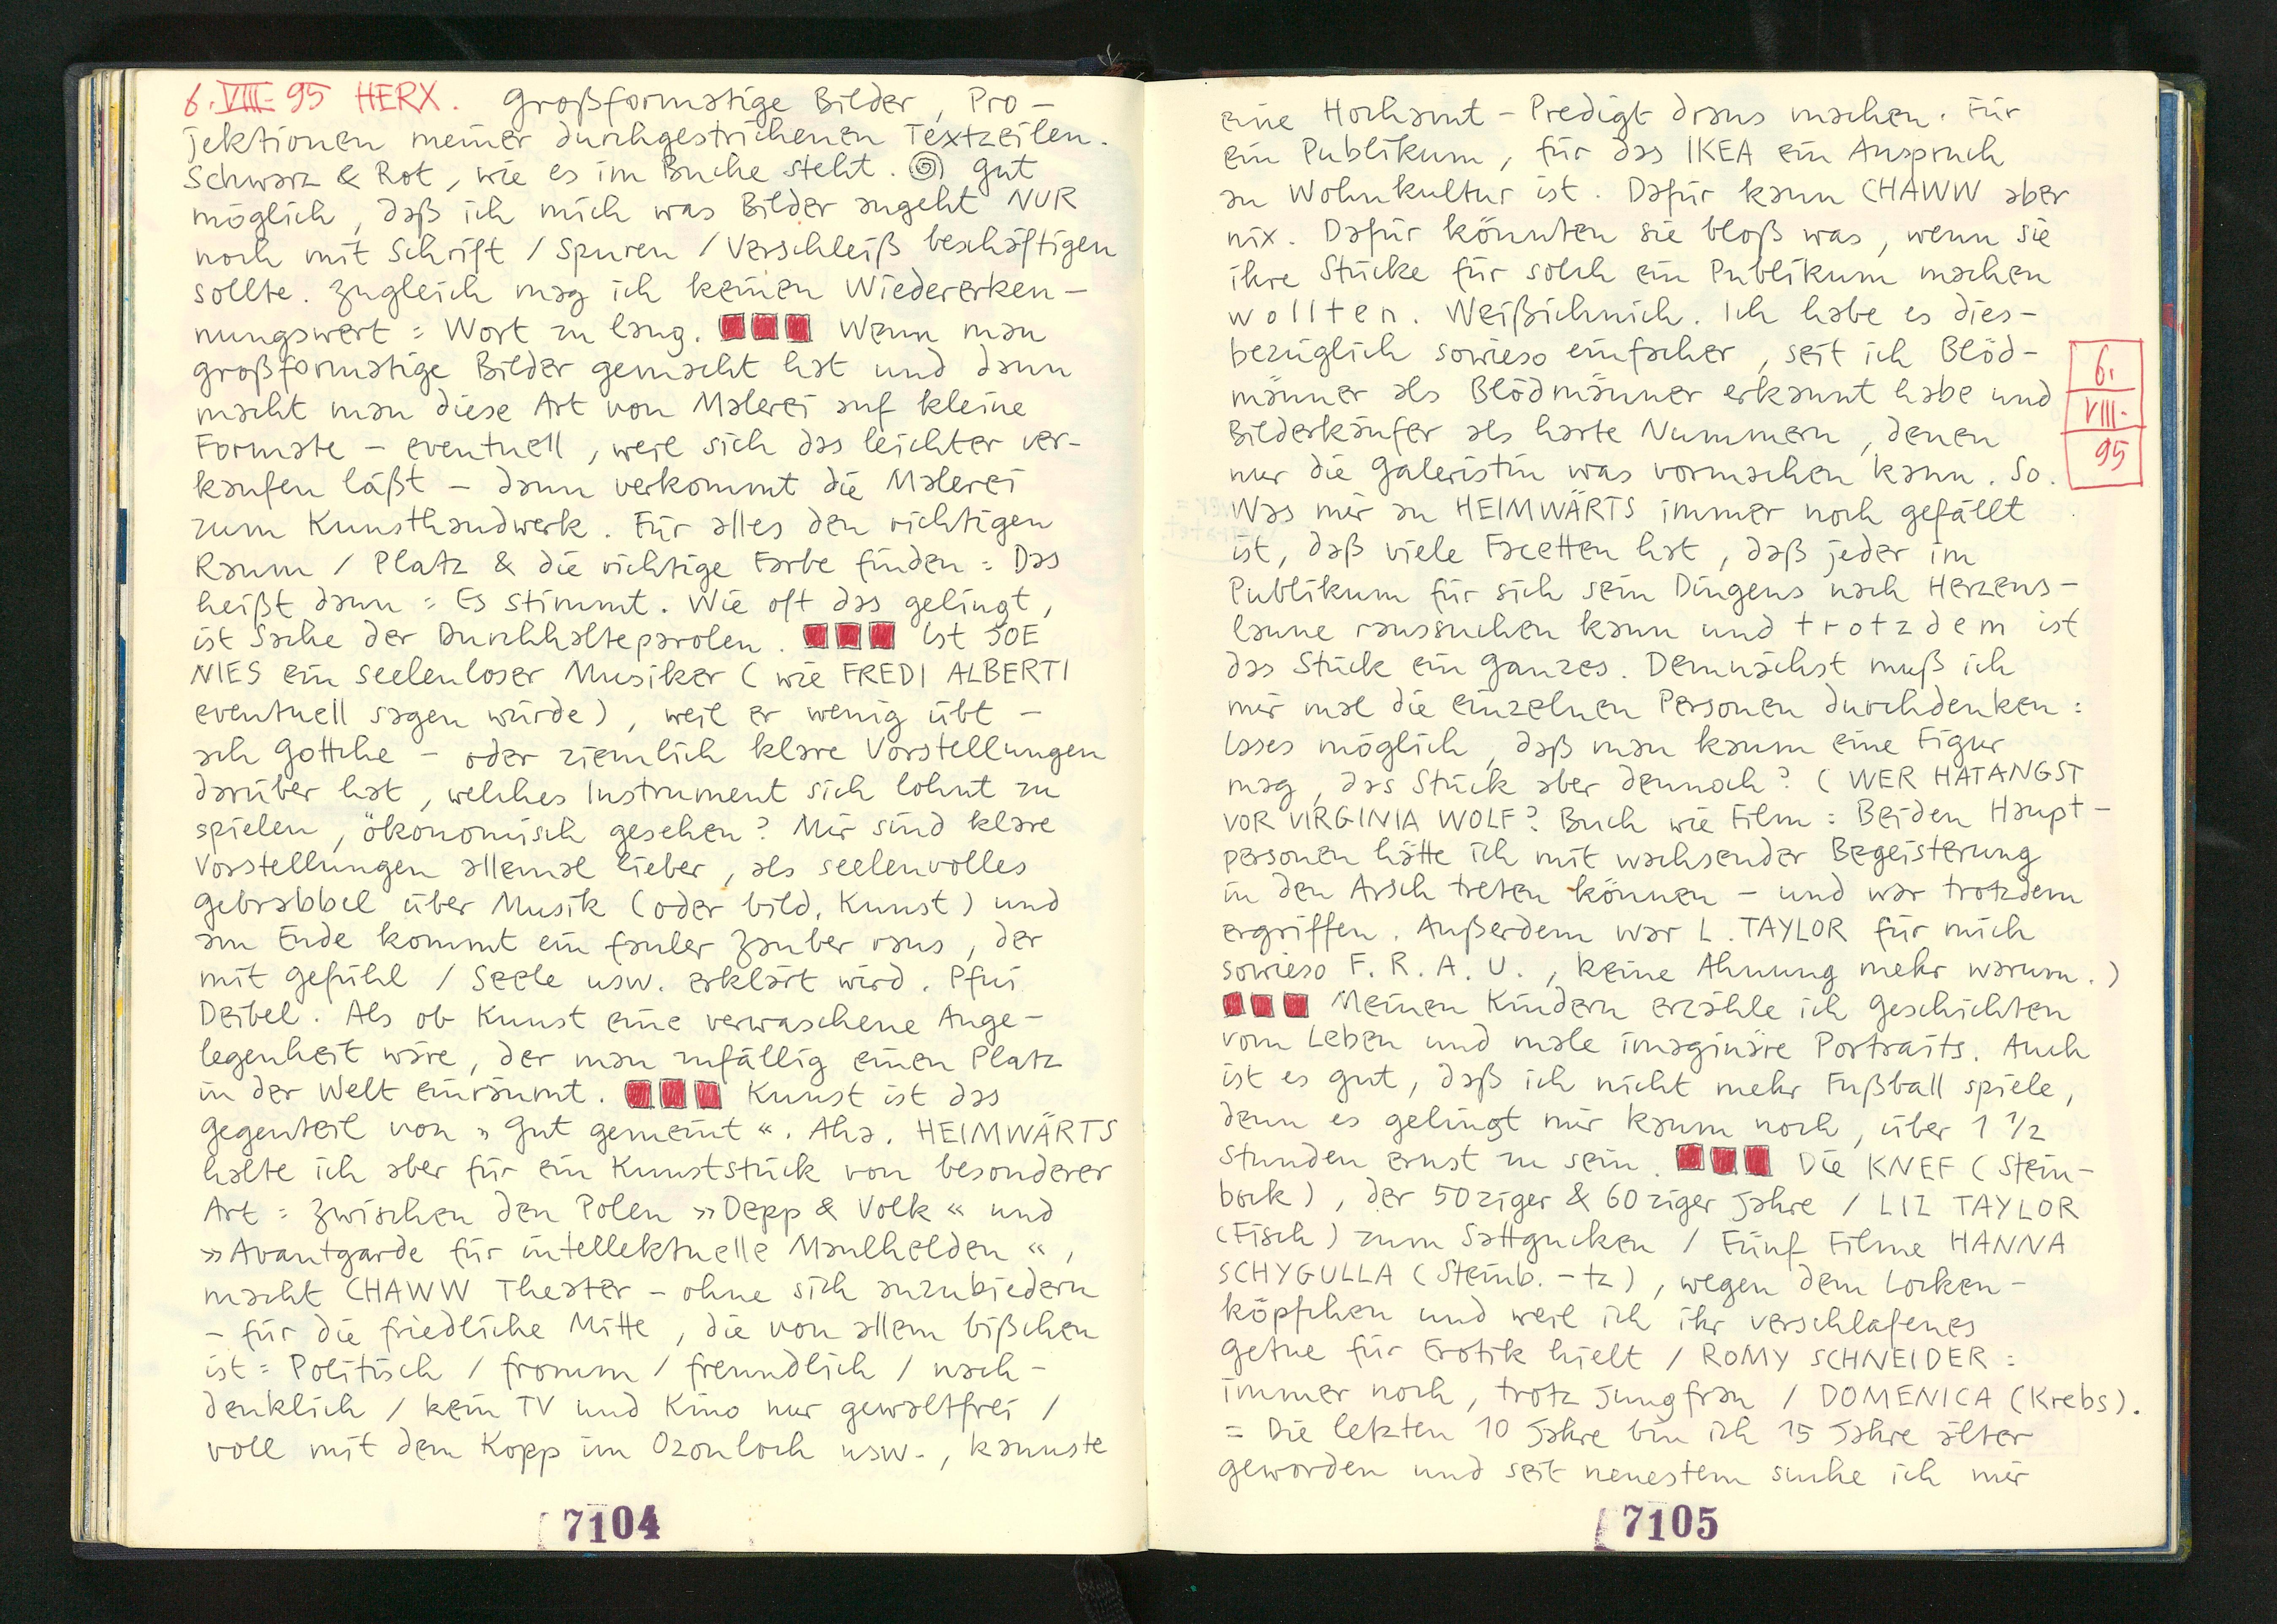 6. VIII. 95 HERX. Großformatige Bilder, Pro-
jektionen meiner durchgestrichenen Textzeilen.
Schwarz & Rot, wie es im Buche steht. Gut
möglich, daß ich mich was Bilder angeht NUR
noch mit Schrift / Spuren / Verschleiß beschäftigen
sollte. Zugleich mag ich keinen Wiedererken-
nungswert = Wort zu lang. Wenn man
großformatige Bilder gemacht hat und dann
macht man diese Art von Malerei auf kleine
Formate – eventuell, weil sich das leichter ver-
kaufen läßt – dann verkommt die Malerei
zum Kunsthandwerk. Für alles den richtigen
Raum / Platz & die richtige Farbe finden = Das
heißt dann = Es stimmt. Wie oft das gelingt,
ist Sache der Durchhalteparolen. Ist JOE
NIES ein seelenloser Musiker (wie FREDI ALBERTI
eventuell sagen würde), weil er wenig übt –
ach Gottche – oder ziemlich klare Vorstellungen
darüber hat, welches Instrument sich lohnt zu
spielen, ökonomisch gesehen? Mir sind klare
Vorstellungen allemal lieber, als seelenvolles
Gebrabbel über Musik (oder bild. Kunst) und
am Ende kommt ein fauler Zauber raus, der
mit Gefühl / Seele usw. erklärt wird. Pfui
Deibel. Als ob Kunst eine verwaschene Ange-
legenheit wäre, der man zufällig einen Platz
in der Welt einräumt. Kunst ist das
Gegenteil von „Gut gemeint“. Aha. HEIMWÄRTS
halte ich aber für ein Kunststück von besonderer
Art = Zwischen den Polen »Depp & Volk« und
»Avantgarde für intellektuelle Maulhelden«,
macht CHAWW Theater – ohne sich anzubiedern
– für die friedliche Mitte, die von allem bißchen
ist = Politisch / fromm / freundlich / nach-
denklich / kein TV und Kino nur gewaltfrei /
voll mit dem Kopp im Ozonloch usw., kannste
7104
eine Hochamt-Predigt draus machen. Für
ein Publikum, für das IKEA ein Anspruch
an Wohnkultur ist. Dafür kann CHAWW aber
nix. Dafür könnten sie bloß was, wenn sie
ihre Stücke für solch ein Publikum machen
wollten. Weißichnich. Ich habe es dies-
bezüglich sowieso einfacher, seit ich Blöd-
männer als Blödmänner erkannt habe und
Bilderkäufer als harte Nummern, denen
nur die Galeristin was vormachen kann. So.
Was mir an HEIMWÄRTS immer noch gefällt
ist, daß viele Facetten hat, daß jeder im
Publikum für sich sein Dingens nach Herzens-
laune raussuchen kann und trotzdem ist
das Stück ein Ganzes. Demnächst muß ich
mir mal die einzelnen Personen durchdenken:
Isses möglich, daß man kaum eine Figur
mag, das Stück aber dennoch? (WER HAT ANGST
VOR VIRGINIA WOLF? Buch wie Film = Beiden Haupt-
personen hätte ich mit wachsender Begeisterung
in den Arsch treten können – und war trotzdem
ergriffen. Außerdem war L. TAYLOR für mich
sowieso F. R. A. U., keine Ahnung mehr warum.)
Meinen Kindern erzähle ich Geschichten
vom Leben und male imaginäre Portraits. Auch
ist es gut, daß ich nicht mehr Fußball spiele,
denn es gelingt mir kaum noch, über 1 1/2
Stunden ernst zu sein. Die KNEF (Stein-
bock), der 50ziger & 60ziger Jahre / LIZ TAYLOR
(Fisch) zum Sattgucken / Fünf Filme HANNA
SCHYGULLA (Steinb. -tz), wegen dem Locken-
köpfchen und weil ich ihr verschlafenes
Getue für Erotik hielt / ROMY SCHNEIDER =
immer noch, trotz Jungfrau / DOMENICA (Krebs).
= Die letzten 10 Jahre bin ich 15 Jahre älter
geworden und seit neuestem suche ich mir
6.
VIII.
95
7105